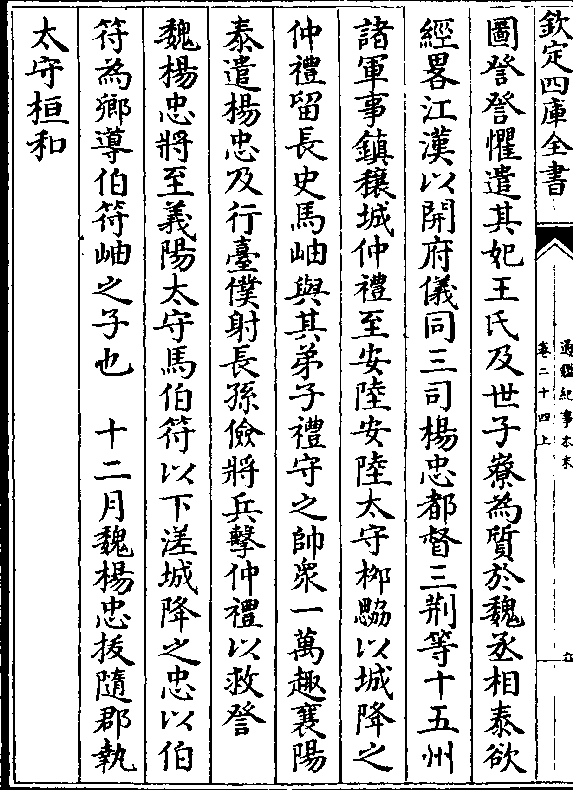 欽定四庫全書
通鑑紀事本末
卷二十四上
圖詧詧懼遣其妃王氏及世子嶚為質於魏丞相泰欲
經畧江漢以開府儀同三司楊忠都督三荆等十五州
諸軍事鎮穰城仲禮至安陸安陸太守栁勰以城降之
仲禮留長史馬岫與其弟子禮守之帥衆一萬趣襄陽
泰遣楊忠及行臺僕射長孫儉將兵擊仲禮以救詧
魏楊忠將至義陽太守馬伯符以下溠城降之忠以伯
符為鄉導伯符岫之子也　十二月魏楊忠拔隨郡執
太守桓和